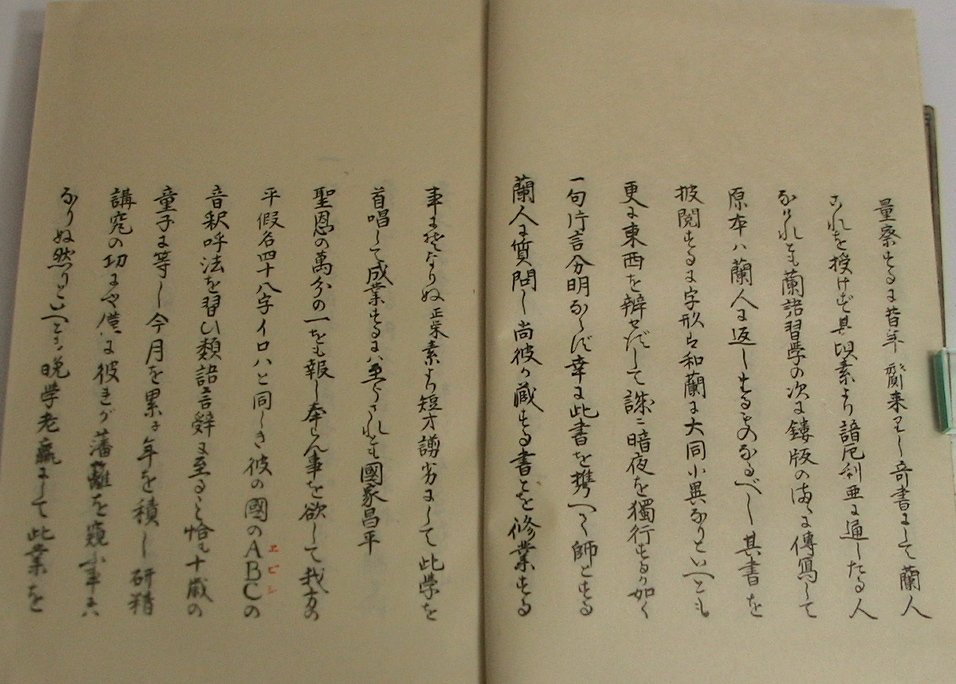 量察するに昔年齎来りし奇書にして蘭人
これを授けず其以素より諳厄利亜に通したる人
なけれとも蘭語習學の次に鏤版のまゝに傳寫して
原本ハ蘭人に返しするものなるべし其書を
披閲するに字形は和蘭に大同小異なりといへとも
更に東西を辨せずして誠ニ暗夜を獨行するか如く
一句片言分明ならず幸に此書を携へて師とする
蘭人に質問し尚彼か蔵する書とを修業する
事にそなりぬ正栄素より短才謭劣にして此学を
首唱して成業するにハ至らされとも國家昌平
聖恩の萬分の一をも報し奉らん事を欲して我方の
平假名四十八字イロハと同しき彼の國のABCの
エビシ
音釈呼法を習ひ類語言辞に至るまて恰も十歳の
童子に等し今月を累ね年を積し研精
講究の功にや僅に彼きか藩籬を窺ふ事と
なりぬ然りといへとも晩学老羸にして此業を